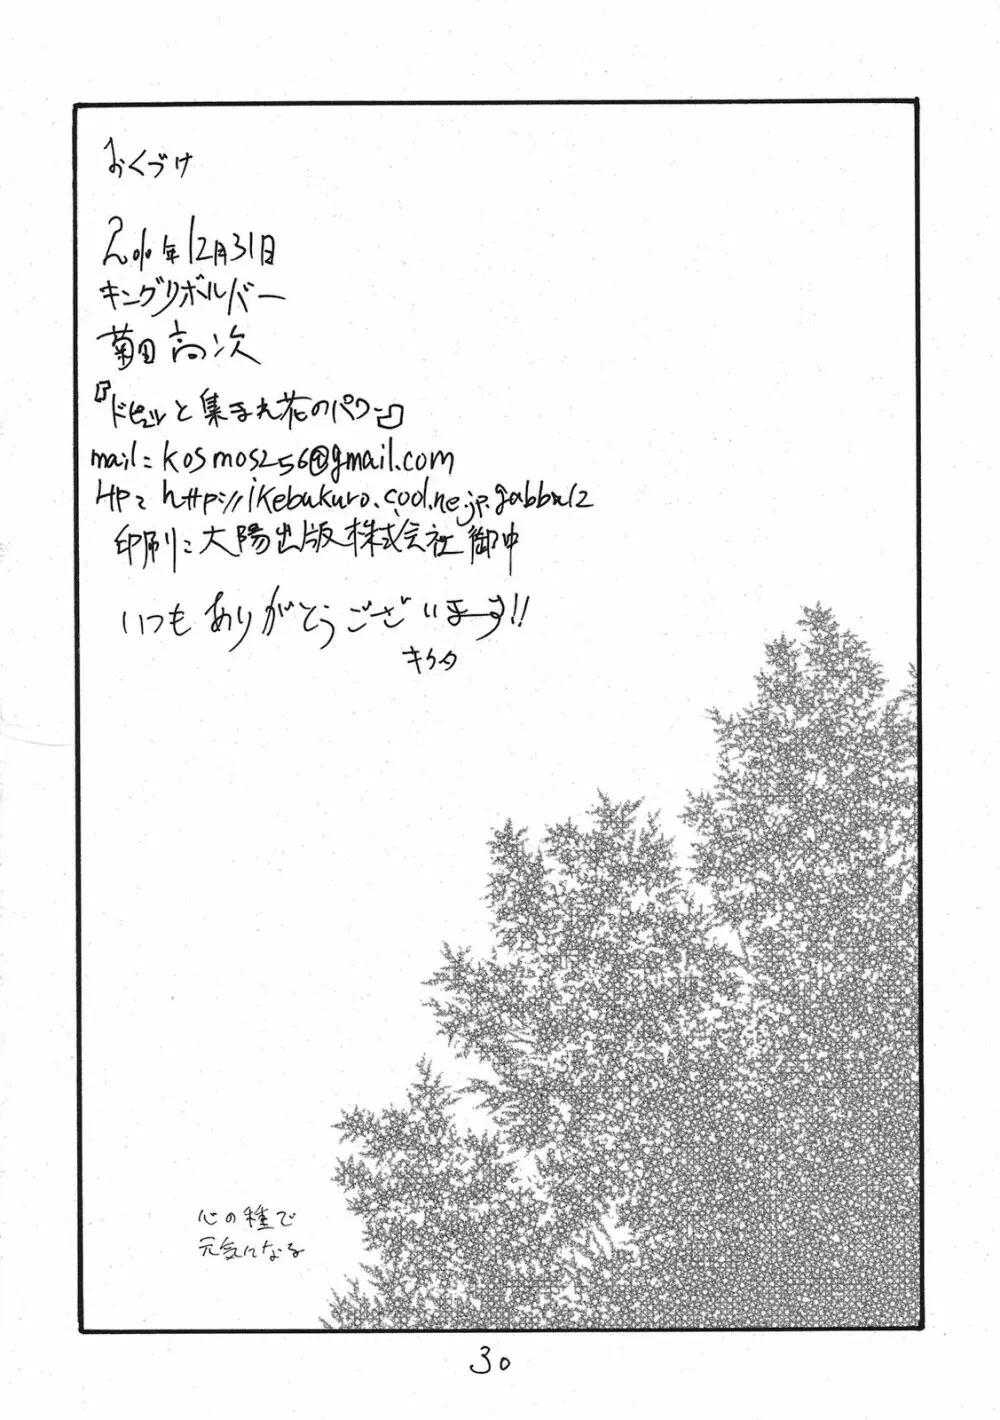 おくづけ
2010年12月31日
キングリボルバー
菊田高次
『ドピュッと集まれ花のパワー』
mail: kosmos256@gmail.com
HP: http://ikebukuro.cool.ne.jp.gabbul2
印刷: 大陽出版株式会社御中
いつもありがとうございまーす!!
キクタ
心の種で
元気になる
30